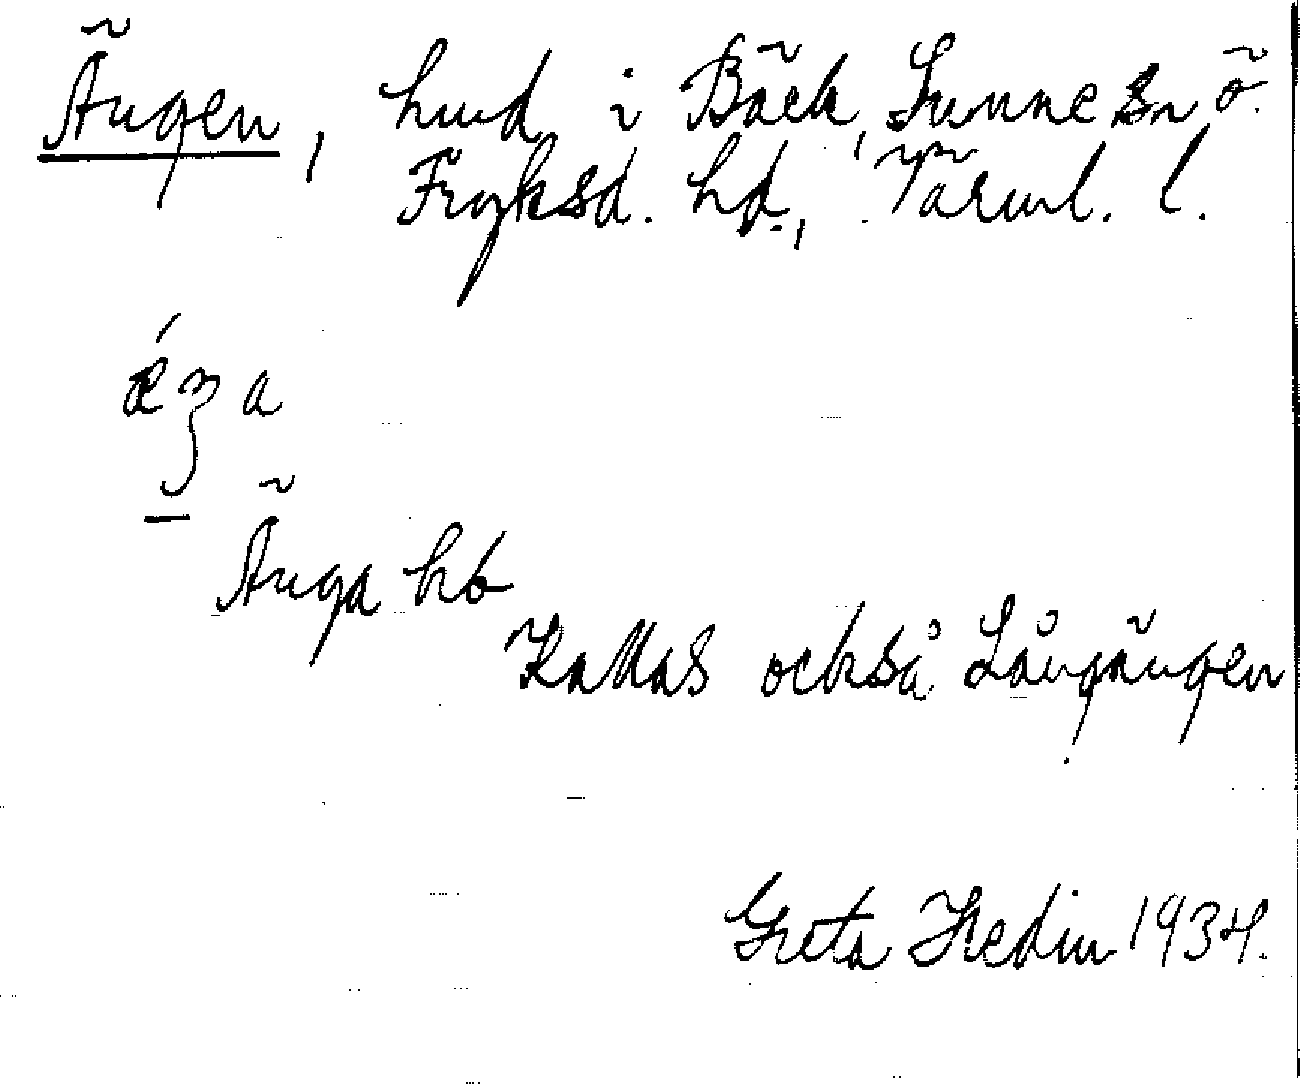 Ängen, hmd i Bäck, Sunne sn, ö.
Fryksd. hd., Värml. l.
ǽŋa
Änga hb
Kallas också Långängen
Greta Hedin 1934.